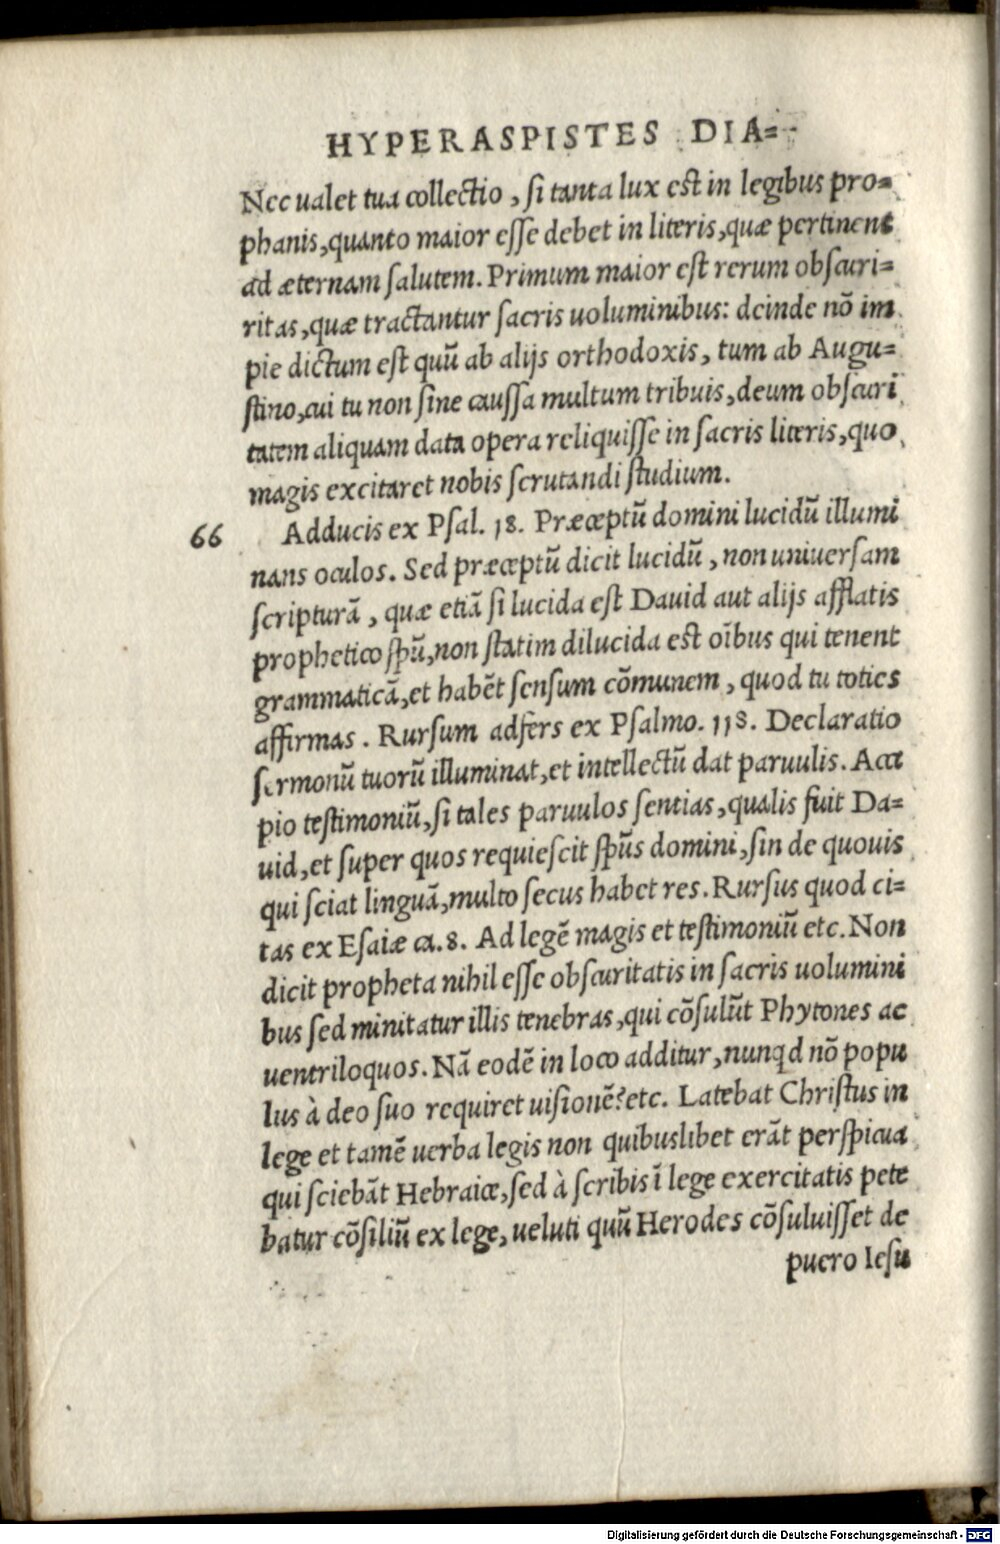 HYPERASPISTES DIA=
Nec ualet tua collectio, si tanta lux est in legibus pro=
phanis, quanto maior esse debet in literis, quæ pertinent
ad æternam salutem. Primum maior est rerum obscuri=
ritas, quæ tractantur sacris uoluminibus: deinde nõ im
pie dictum est quũ ab alijs orthodoxis, tum ab Augu=
stino, cui tu non sine caussa multum tribuis, deum obscuri
tatem aliquam data opera reliquisse in sacris literis, quo
magis excitaret nobis scrutandi studium.
66 Adducis ex Psal. 18. Præceptũ domini lucidũ illumi
nans oculos. Sed præceptũ dicit lucidũ, non uniuersam
scripturã, quæ etiã si lucida est Dauid aut alijs afflatis
prophetico spũ, non statim dilucida est oĩbus qui tenent
grammaticã, et habẽt sensum cõmunem, quod tu toties
affirmas. Rursum adfers ex Psalmo. 118. Declaratio
sermonũ tuorũ illuminat, et intellectũ dat paruulis. Acci
pio testimoniũ, si tales paruulos sentias, qualis fuit Da=
uid, et super quos requiescit spũs domini, sin de quouis
qui sciat linguã, multo secus habet res. Rursus quod ci=
tas ex Esaiæ ca. 8. Ad legẽ magis et testimoniũ etc. Non
dicit propheta nihil esse obscuritatis in sacris uolumini
bus sed minitatur illis tenebras, qui cõsulũt Phytones ac
uentriloquos. Nã eodẽ in loco additur, nunqd nõ popu
lus à deo suo requiret uisionẽ? etc. Latebat Christus in
lege et tamẽ uerba legis non quibuslibet erãt perspicua
qui sciebãt Hebraice, sed à scribis ĩ lege exercitatis pete
batur cõsiliũ ex lege, ueluti quũ Herodes cõsuluisset de
puero Iesu
Digitalisierung gefördert durch die Deutsche Forschungsgemeinschaft - DFG